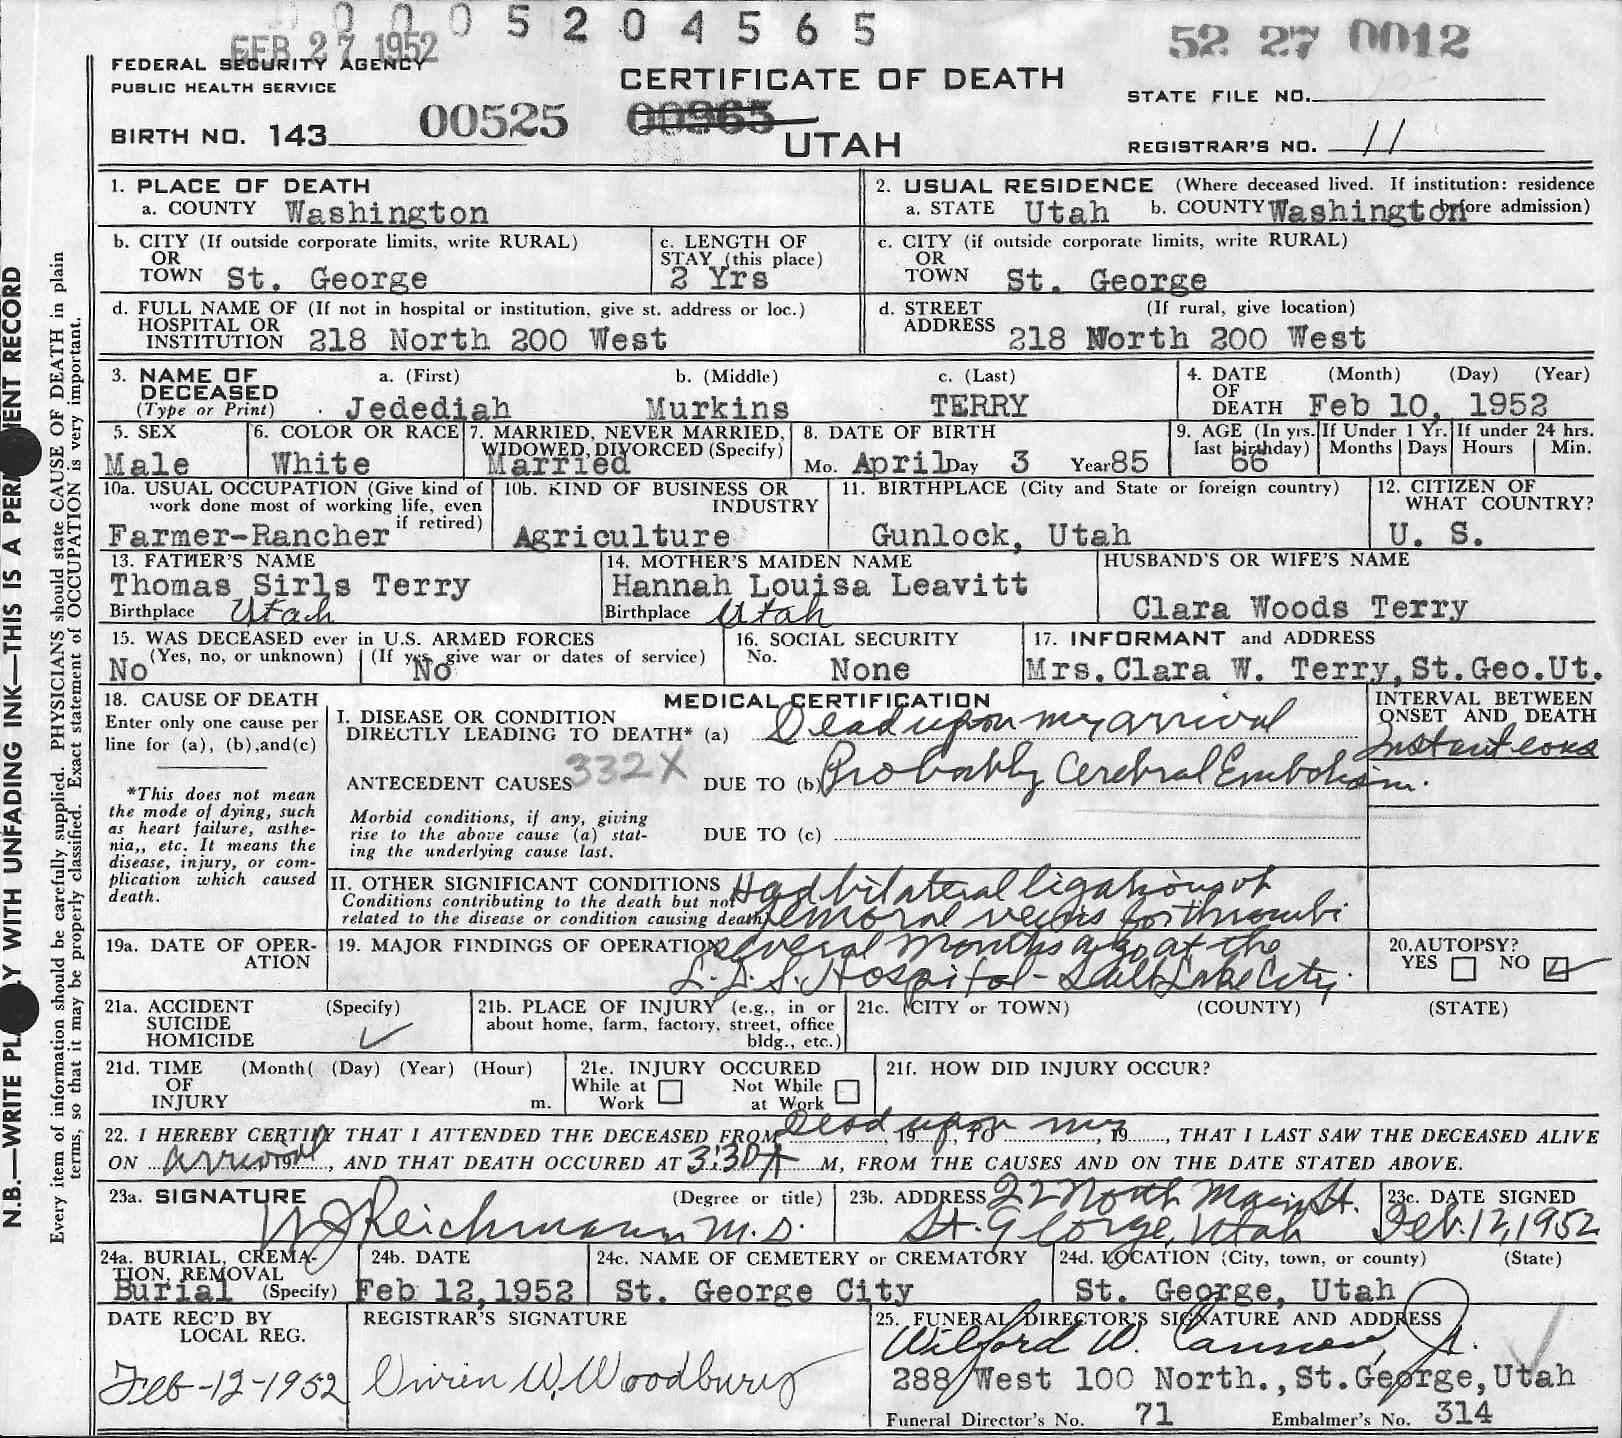 0 0 0 5 2 0 4 5 6 5
FEB 27 1952
52 27 0012
FEDERAL SECURITY AGENCY
PUBLIC HEALTH SERVICE
CERTIFICATE OF DEATH
STATE FILE NO.
BIRTH NO. 143
00525
00965
UTAH
REGISTRAR'S NO. 11
N.B.—WRITE PLAINLY WITH UNFADING INK—THIS IS A PERMANENT RECORD
Every item of information should be carefully supplied. PHYSICIANS should state CAUSE OF DEATH in plain
terms, so that it may be properly classified. Exact statement of OCCUPATION is very important.
1. PLACE OF DEATH
a. COUNTY Washington
2. USUAL RESIDENCE (Where deceased lived. If institution: residence
a. STATE Utah b. COUNTY Washington before admission)
b. CITY (If outside corporate limits, write RURAL)
OR
TOWN St. George
c. LENGTH OF
STAY (this place)
2 Yrs
c. CITY (if outside corporate limits, write RURAL)
OR
TOWN St. George
d. FULL NAME OF (If not in hospital or institution, give st. address or loc.)
HOSPITAL OR
INSTITUTION 218 North 200 West
d. STREET (If rural, give location)
ADDRESS 218 North 200 West
3. NAME OF a. (First) b. (Middle) c. (Last)
DECEASED
(Type or Print) Jedediah Murkins TERRY
4. DATE (Month) (Day) (Year)
OF
DEATH Feb 10, 1952
5. SEX
Male
6. COLOR OR RACE
White
7. MARRIED, NEVER MARRIED,
WIDOWED, DIVORCED (Specify)
Married
8. DATE OF BIRTH
Mo. April Day 3 Year 85
9. AGE (In yrs.
last birthday)
66
If Under 1 Yr.
Months Days
If under 24 hrs.
Hours Min.
10a. USUAL OCCUPATION (Give kind of
work done most of working life, even
if retired)
Farmer-Rancher
10b. KIND OF BUSINESS OR
INDUSTRY
Agriculture
11. BIRTHPLACE (City and State or foreign country)
Gunlock, Utah
12. CITIZEN OF
WHAT COUNTRY?
U. S.
13. FATHER'S NAME
Thomas Sirls Terry
Birthplace Utah
14. MOTHER'S MAIDEN NAME
Hannah Louisa Leavitt
Birthplace Utah
HUSBAND'S OR WIFE'S NAME
Clara Woods Terry
15. WAS DECEASED ever in U.S. ARMED FORCES
(Yes, no, or unknown) (If yes, give war or dates of service)
No No
16. SOCIAL SECURITY
No. None
17. INFORMANT and ADDRESS
Mrs. Clara W. Terry, St.Geo.Ut.
18. CAUSE OF DEATH
Enter only one cause per
line for (a), (b),and(c)
*This does not mean
the mode of dying, such
as heart failure, asthe-
nia,, etc. It means the
disease, injury, or com-
plication which caused
death.
MEDICAL CERTIFICATION
I. DISEASE OR CONDITION
DIRECTLY LEADING TO DEATH* (a) Dead upon my arrival
ANTECEDENT CAUSES 332X DUE TO (b) Probably Cerebral Embolism.
Morbid conditions, if any, giving
rise to the above cause (a) stat-
ing the underlying cause last.
DUE TO (c)
INTERVAL BETWEEN
ONSET AND DEATH
II. OTHER SIGNIFICANT CONDITIONS
Conditions contributing to the death but not
related to the disease or condition causing death.
Had bilateral ligations of
femoral veins for thrombi
19a. DATE OF OPER-
ATION
19. MAJOR FINDINGS OF OPERATION
several months ago at the
L.D.S. Hospital - Salt Lake City.
20. AUTOPSY?
YES NO
21a. ACCIDENT (Specify)
SUICIDE
HOMICIDE
21b. PLACE OF INJURY (e.g., in or
about home, farm, factory, street, office
bldg., etc.)
21c. (CITY or TOWN) (COUNTY) (STATE)
21d. TIME (Month( (Day) (Year) (Hour)
OF
INJURY m.
21e. INJURY OCCURED
While at Not While
Work at Work
21f. HOW DID INJURY OCCUR?
22. I HEREBY CERTIFY THAT I ATTENDED THE DECEASED FROM Dead upon, 19, TO my, 19, THAT I LAST SAW THE DECEASED ALIVE
ON arrival 19, AND THAT DEATH OCCURED AT 3:30 A M, FROM THE CAUSES AND ON THE DATE STATED ABOVE.
23a. SIGNATURE (Degree or title)
W J Reichmann M.D.
23b. ADDRESS 22 North Main St.
St. George, Utah
23c. DATE SIGNED
Feb. 12, 1952
24a. BURIAL, CREMA-
TION, REMOVAL
Burial (Specify)
24b. DATE
Feb 12,1952
24c. NAME OF CEMETERY or CREMATORY
St. George City
24d. LOCATION (City, town, or county) (State)
St. George, Utah
DATE REC'D BY
LOCAL REG.
Feb-12-1952
REGISTRAR'S SIGNATURE
Vivien W. Woodbury
25. FUNERAL DIRECTOR'S SIGNATURE AND ADDRESS
Wilford W. Cannon, Jr.
288 West 100 North., St.George, Utah
Funeral Director's No. 71 Embalmer's No. 314